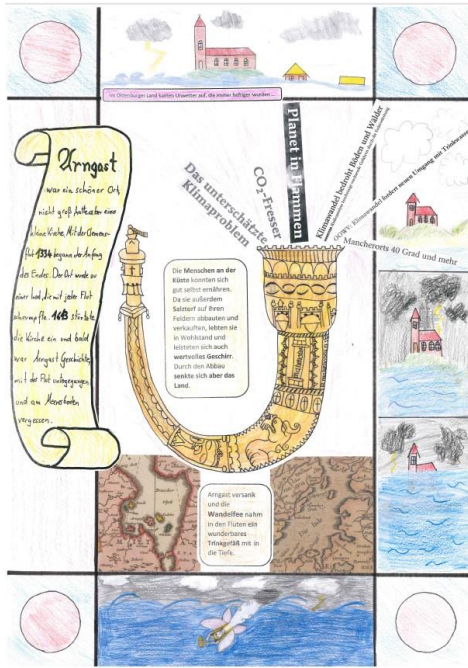 Im Oldenburger Land kamen Unwetter auf, die immer heftiger wurden ...
Arngast
war ein schöner Ort,
nicht groß,
eine
kleine Kirche. Mit der Clemens-
flut 1334 begann der Anfang
des Endes. Der Ort wurde zu
einer Insel, die mit jeder Flut
schrumpfte. 1613 stürzte
die Kirche ein und bald
war Arngast Geschichte,
mit der Flut untergegangen
und am Meeresboden
vergessen.
Das unterschätzte
Klimaproblem
CO2-Fresser
Planet in Flammen
Klimawandel bedroht Böden und Wälder
OOWV: Klimawandel fordert neuen Umgang mit Trinkwasser
Mancherorts 40 Grad und mehr
Die Menschen an der
Küste konnten sich
gut selbst ernähren.
Da sie außerdem
Salztorf auf ihren
Feldern abbauten und
verkauften, lebten sie
in Wohlstand und
leisteten sich auch
wertvolles Geschirr.
Durch den Abbau
senkte sich aber das
Land.
Arngast versank
und die
Wandelfee nahm
in den Fluten ein
wunderbares
Trinkgefäß mit in
die Tiefe.